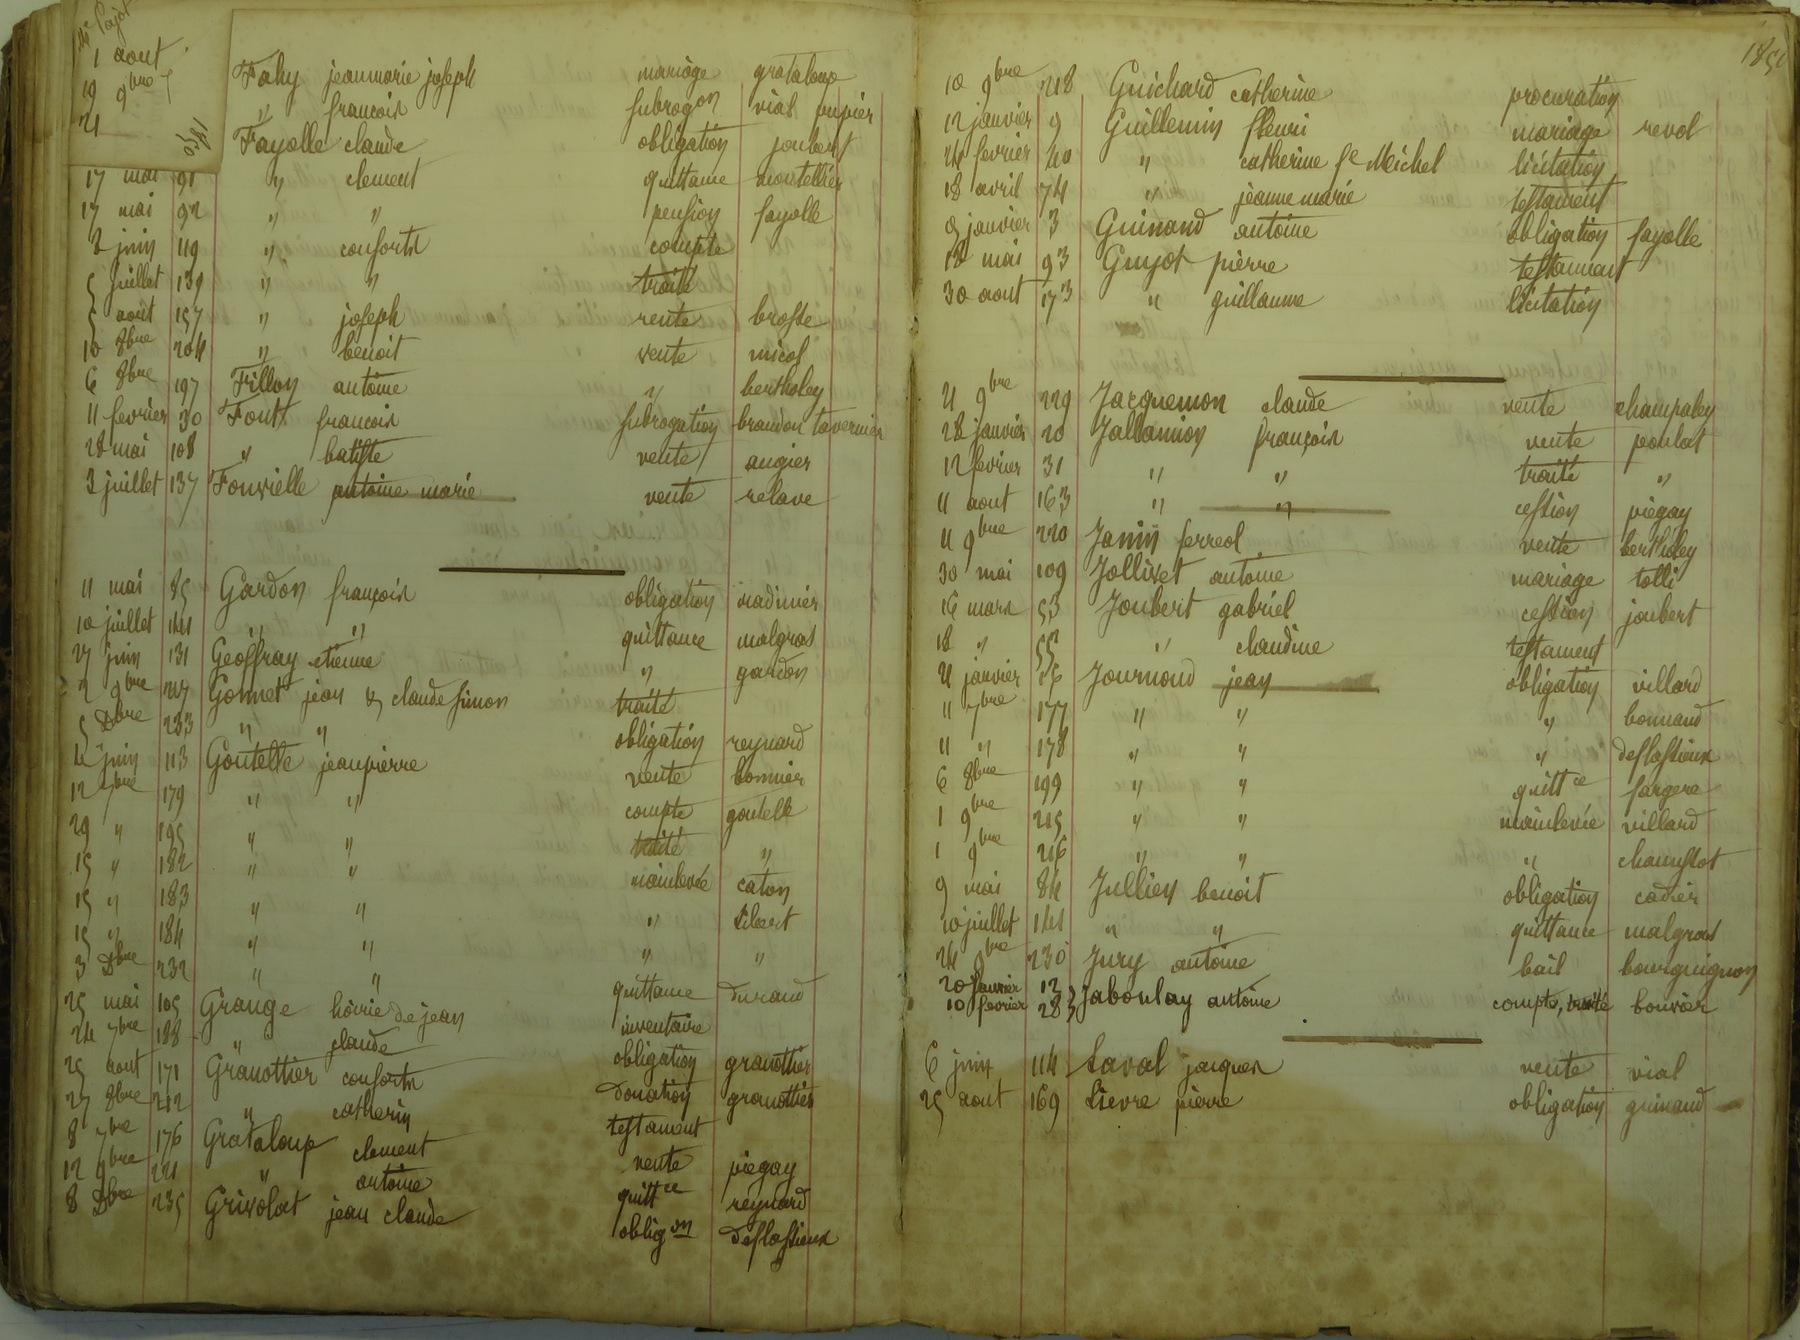 Me Pajot
1 aout
19 9bre
21
1850
Fahy jeanmarie joseph mariage grataloup
" françois subrogon vial pupier
Fayolle claude obligation joubert
17 mai 91 " clement quittance montellier
17 mai 92 " " pension fayolle
2 juin 119 " conforts compte
5 juillet 139 " " traité
5 aout 157 " joseph rente brosse
10 8bre 204 " benoit vente micol
6 8bre 197 Fillon antoine " bertholey
11 fevrier 30 Font françois subrogation brandon tavernier
28 mai 108 " batiste vente augier
3 juillet 137 Fonvielle antoine marie vente relave
11 mai 85 Gardon françois obligation nadinier
10 juillet 141 " " quittance malgras
27 juin 131 Geoffray etienne " gardon
2 9bre 217 Gonnet jean & claude simon traité
5 Dbre 233 " " obligation reynard
4 juin 113 Goutelle jeanpierre vente bonnier
12 7bre 179 " " compte goutelle
29 " 195 " " traité "
15 " 182 " " mainlevée caton
15 " 183 " " " Libert
15 " 184 " " " "
3 Dbre 232 " " quittance Durand
25 mai 105 Grange hoirie de jean inventaire
24 7bre 188 " claude obligation granottier
25 aout 171 Granottier conforts Donation granottier
27 8bre 212 " catherin testament
8 7bre 176 Grataloup clement vente piegay
12 9bre 221 " antoine quittce reynard
8 Dbre 235 Grivolat jean claude obligon Deflassieux
1850
10 9bre 218 Guichard catherine procuration
12 janvier 9 Guillemin fleuri mariage revol
24 fevrier 40 " catherine fe Michel licitation
18 avril 74 " jeanne marie testament
9 janvier 3 Guinand antoine obligation fayolle
18 mai 93 Guyot pierre testament
30 aout 173 " guillaume licitation
21 9bre 229 Jacquemon claude vente champaley
28 janvier 20 Jallamion françois vente poulat
12 fevrier 31 " " traité "
11 aout 163 " " cession piegay
11 9bre 220 Janin ferreol vente bertholey
30 mai 109 Jollivet antoine mariage tolli
16 mars 53 Joubert gabriel cession joubert
18 " 55 " claudine testament
21 janvier 16 Journoud jean obligation villard
11 7bre 177 " " " bonnand
11 " 178 " " " Deflassieux
6 8bre 199 " " quittce fargere
1 9bre 215 " " mainlevée villard
1 9bre 216 " " "
9 mai 84 Jullien benoit obligation cadier
10 juillet 141 " " quittance malgras
24 9bre 230 Jury antoine bail bourguignon
20 janvier 12
10 fevrier 28 } Jaboulay antoine compte, traité bouvier
6 juin 114 Laval jacques vente vial
25 aout 169 Lievre pierre obligation guinand